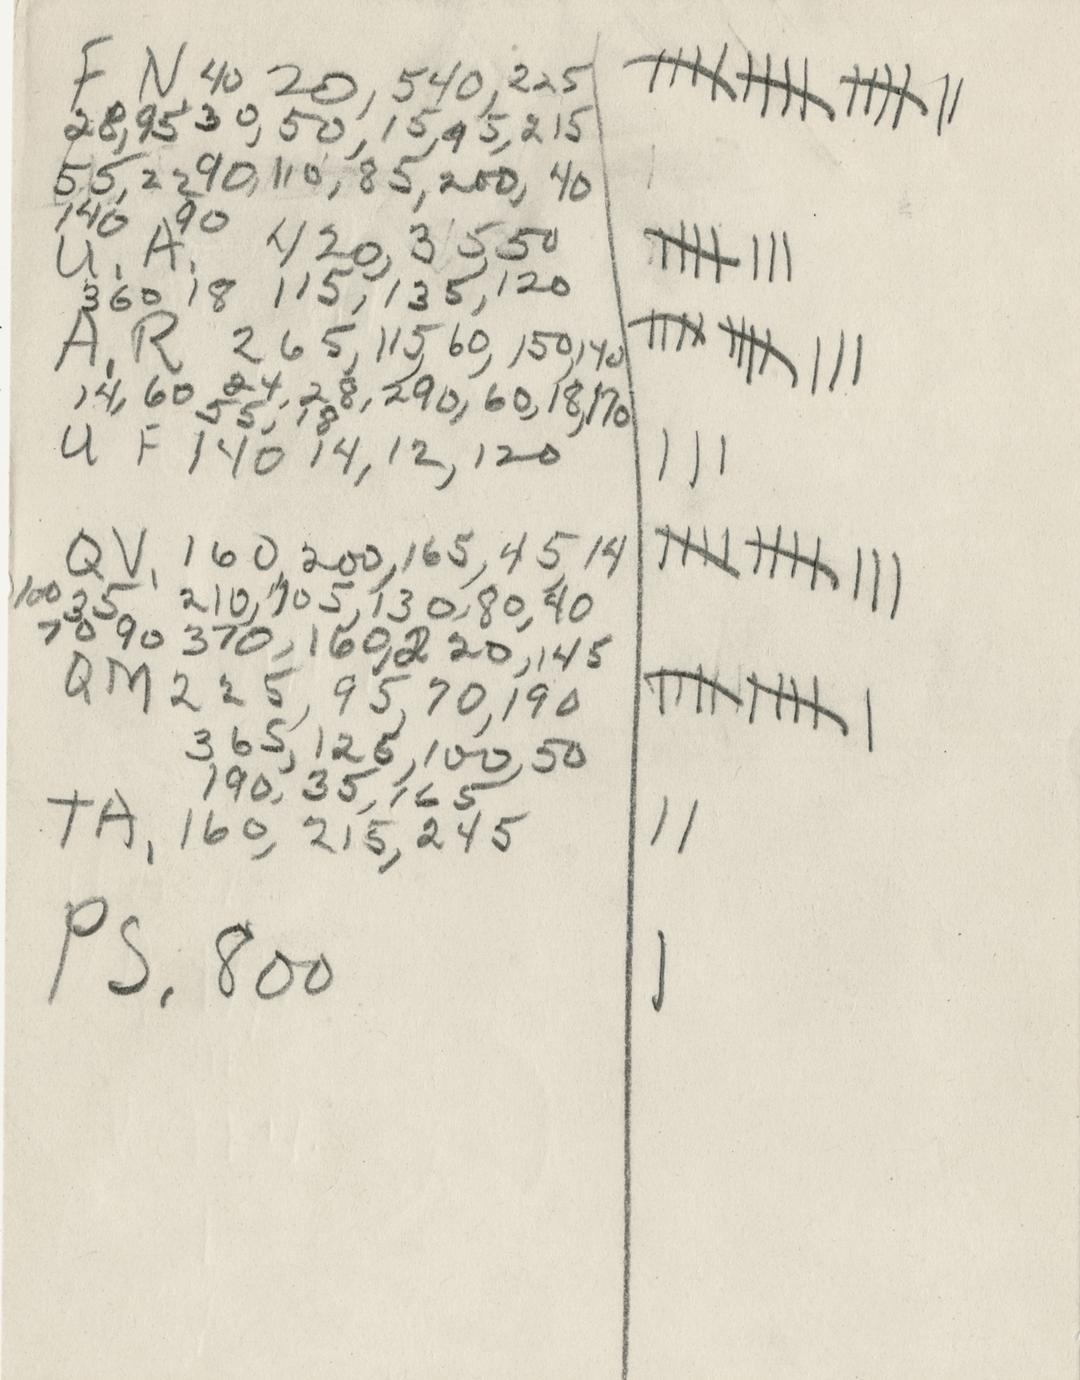 F N 40 20, 540, 225
28, 95 30, 50, 15, 95, 215
55, 22 90, 110, 85, 200, 40
140 90
U. A. 420, 35, 50
360, 18 115, 135, 120
A. R 265, 115, 60, 150, 140
14, 60 24, 28, 290, 60, 18, 170
55, 18
U F 140 14, 12, 120
QV, 160, 200, 165, 45, 14
100 35 210, 105, 130, 80, 40
70 90 370, 160, 220, 145
QM 225, 95, 70, 190
365, 125, 100, 50
190, 35, 165
TA, 160, 215, 245
PS, 800